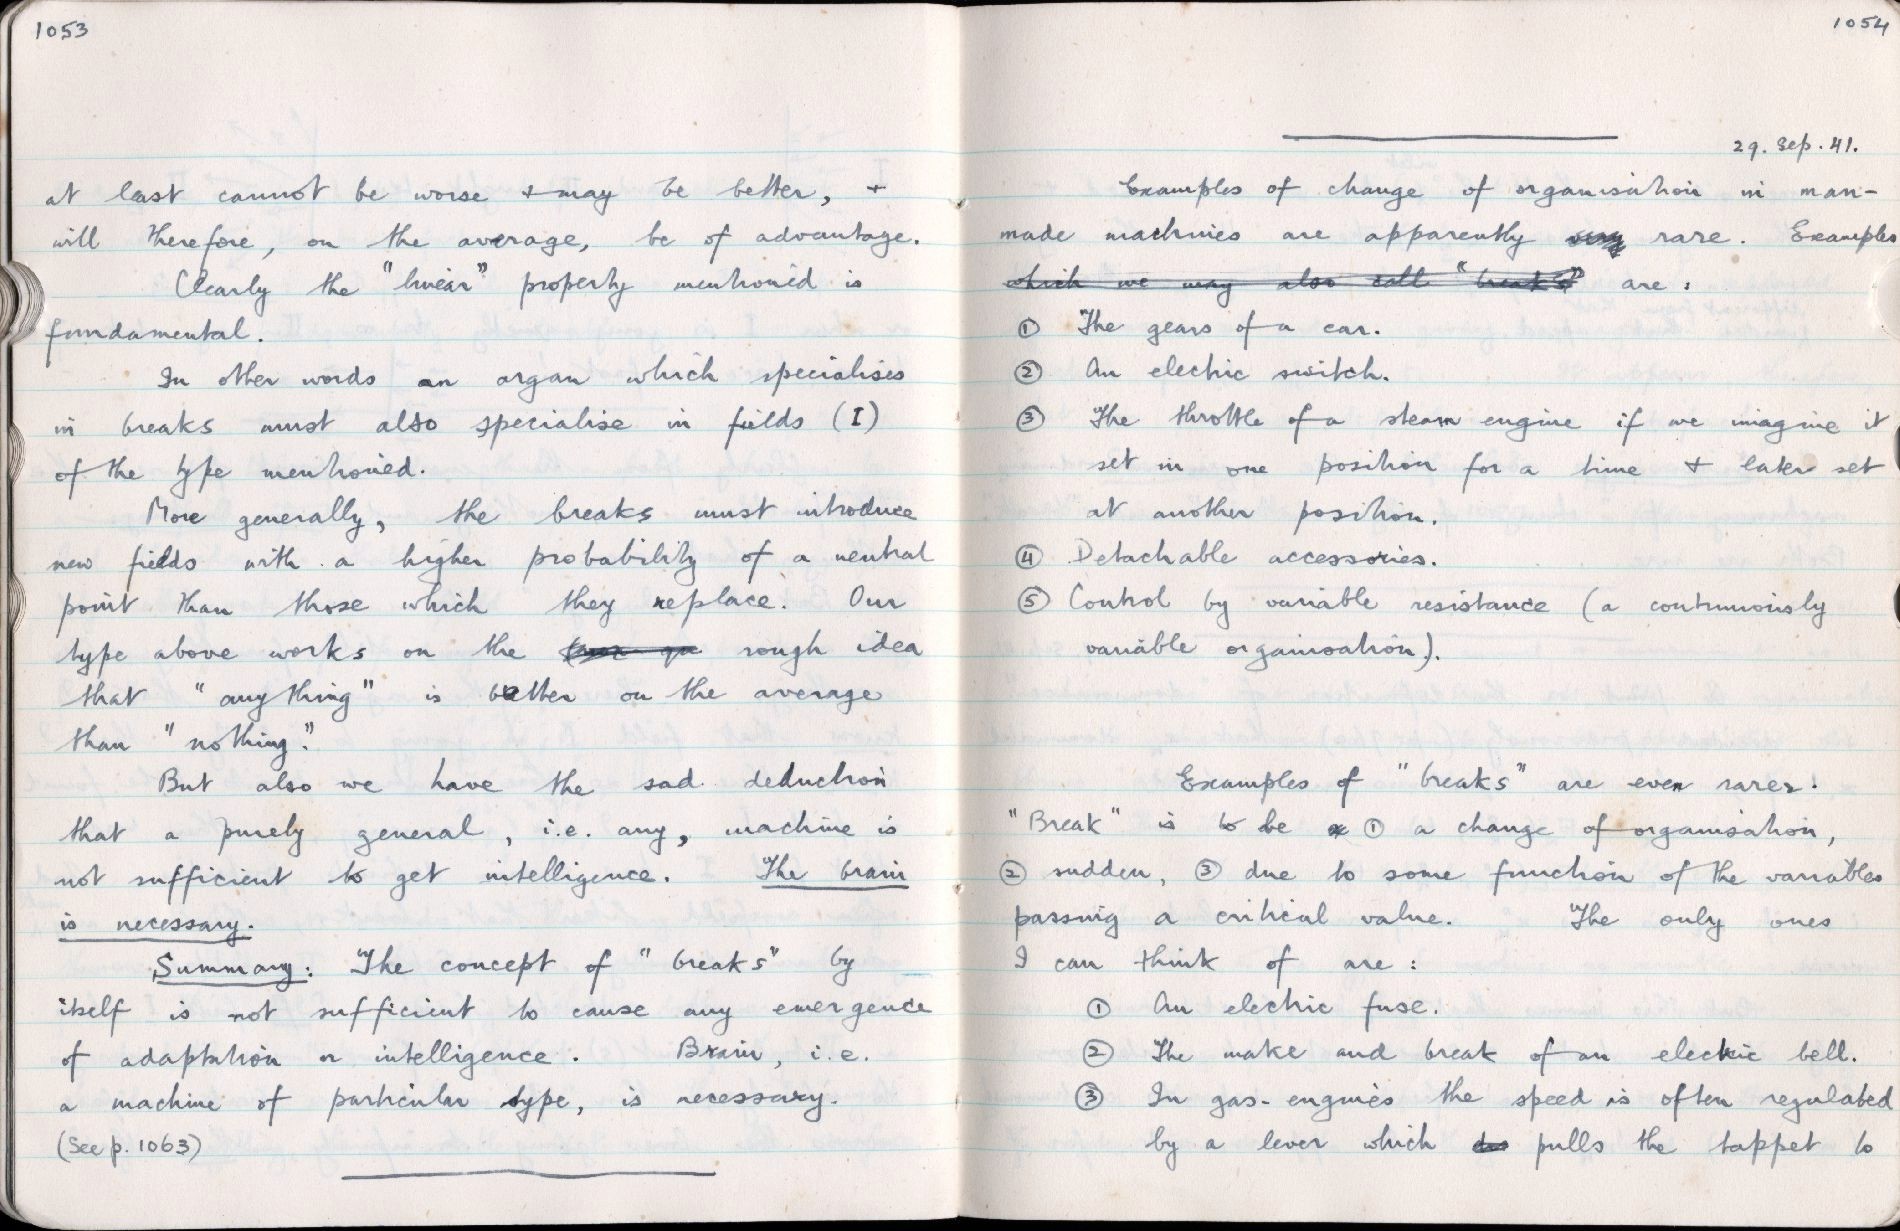 1053
at last cannot be worse + may be better, +
will therefore, on the average, be of advantage.
Clearly the "linear" property mentioned is
fundamental.
In other words an organ which specialises
in breaks must also specialise in fields (I)
of the type mentioned.
More generally, the breaks must introduce
new fields with a higher probability of a neutral
point than those which they replace. Our
type above works on the rough idea
that "anything" is better on the average
than "nothing".
But also we have the sad deduction
that a purely general, i.e. any, machine is
not sufficient to get intelligence. The brain
is necessary.
Summary: The concept of "breaks" by
itself is not sufficient to cause any emergence
of adaptation or intelligence. Brain, i.e.
a machine of particular type, is necessary.
(See p. 1063)
1054
29. Sep. 41.
Examples of change of organisation in man-
made machines are apparently very rare. Examples
which we may also call "breaks" are:
① The gears of a car.
② An electric switch.
③ The throttle of a steam engine if we imagine it
set in one position for a time + later set
at another position.
④ Detachable accessories.
⑤ Control by variable resistance (a continuously
variable organisation).
Examples of "breaks" are even rarer.
"Break" is to be ① a change of organisation,
② sudden, ③ due to some function of the variables
passing a critical value. The only ones
I can think of are:
① An electric fuse.
② The make and break of an electric bell.
③ In gas-engines the speed is often regulated
by a lever which pulls the tappet to